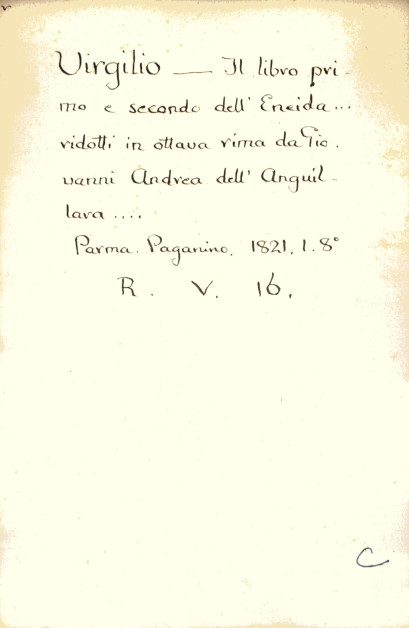 Virgilio — Il libro pri-
mo e secondo dell' Eneida...
ridotti in ottava rima da Gio.
vanni Andrea dell' Anguil-
lara ....
Parma. Paganino. 1821, 1. 8°
R. V. 16.
C